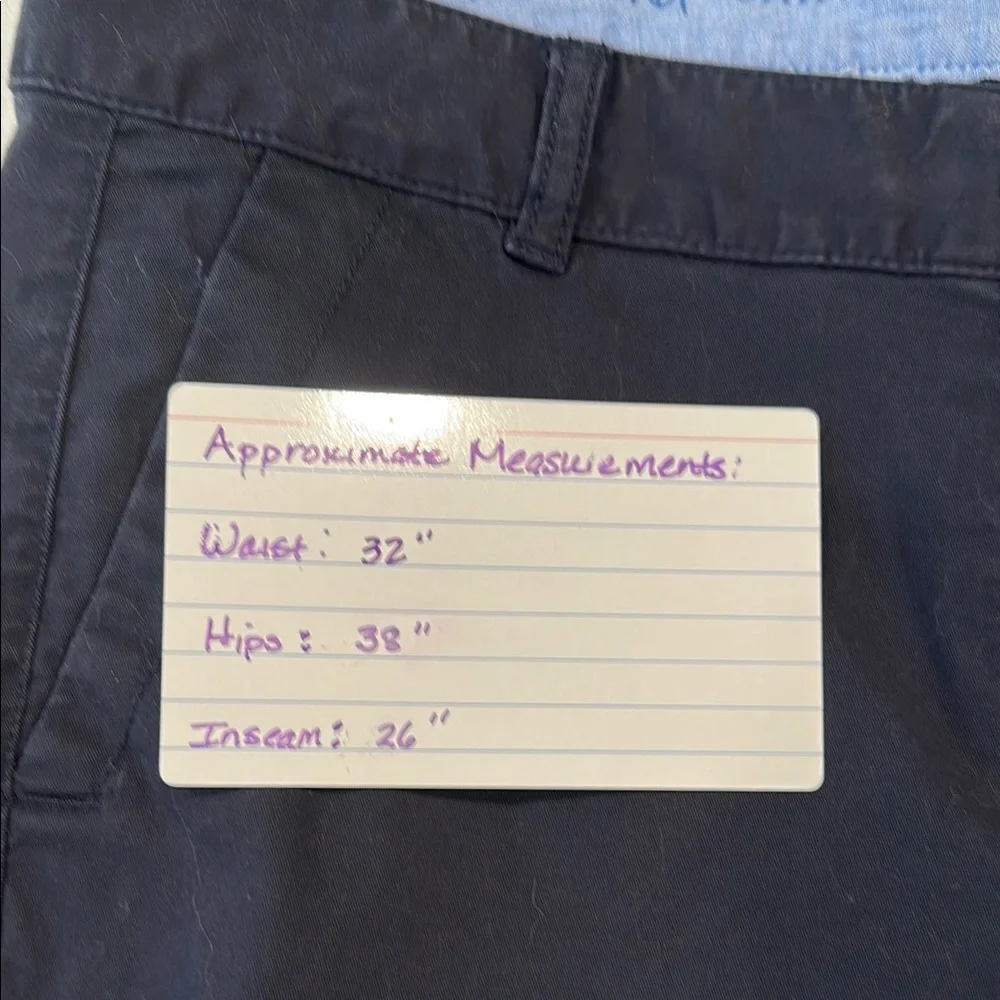 Approximate Measurements:
Waist: 32"
Hips: 38"
Inseam: 26"